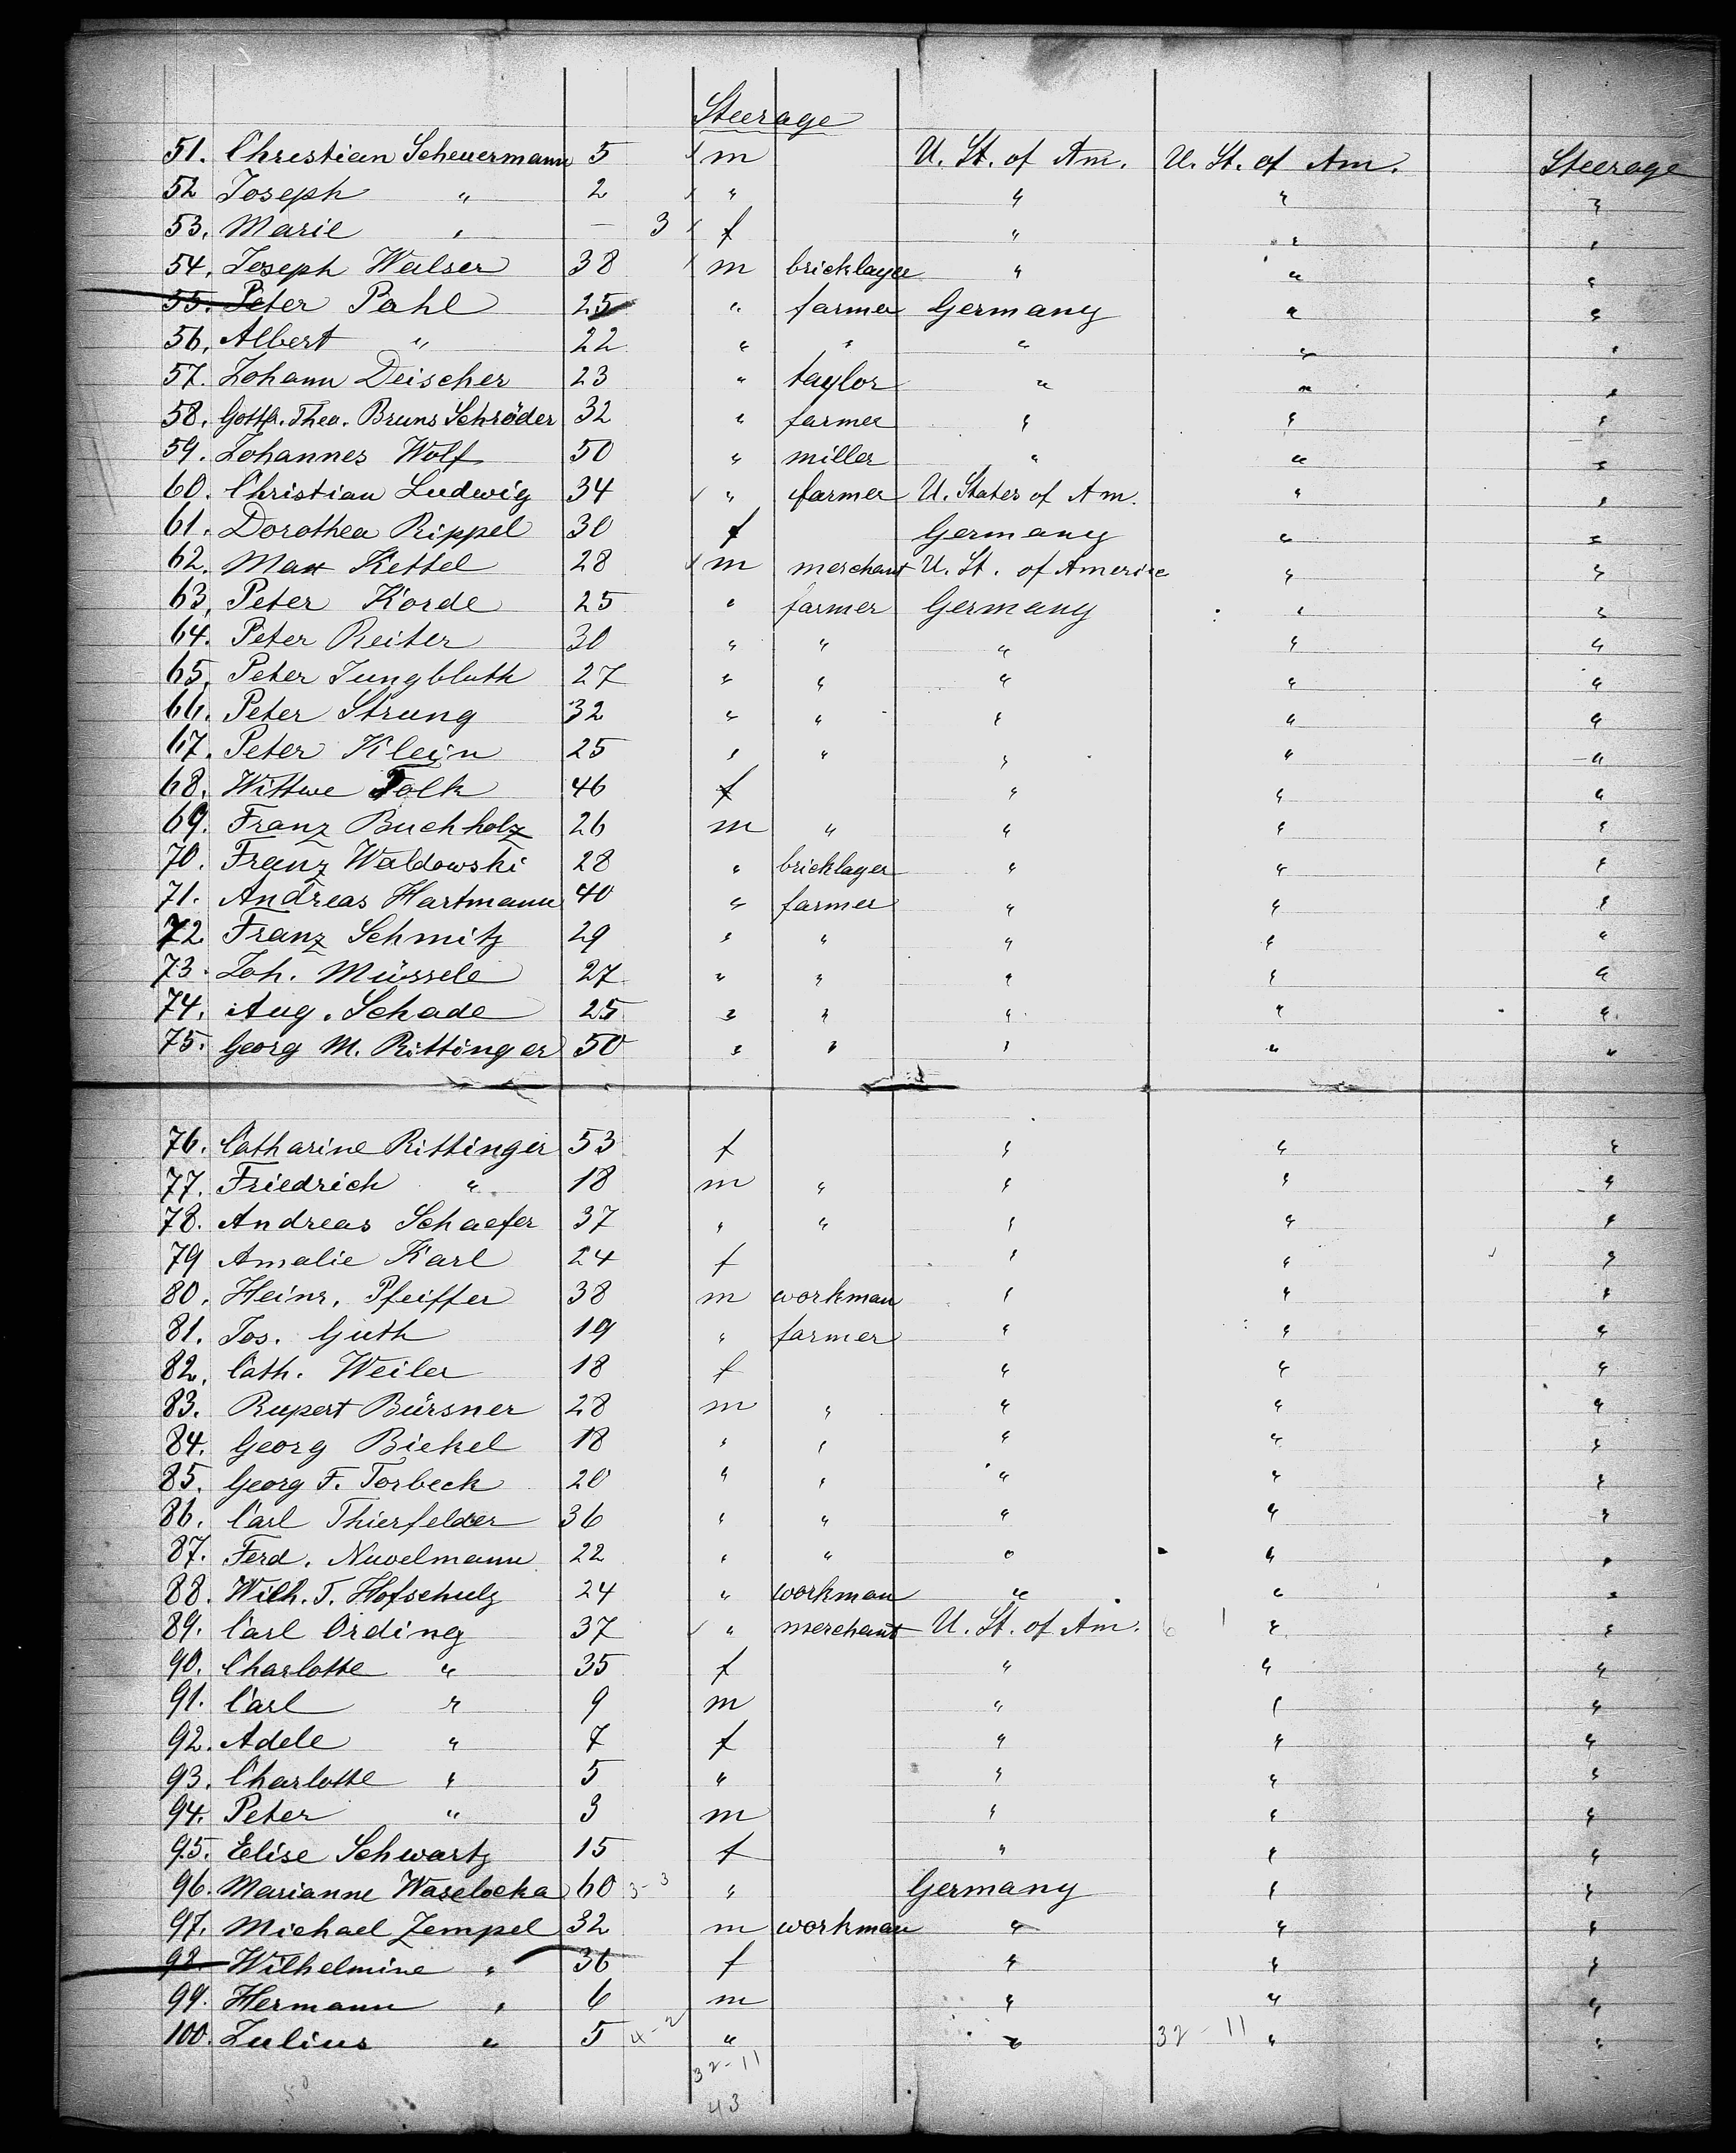 Steerage
51. Christian Scheuermann 5 m U. St. of Am. U. St. of Am. Steerage
52 Joseph " 2 " " " "
53. Marie " – 3 f " " "
54. Joseph Walser 38 m bricklayer " " "
55. Peter Pahl 25 " farmer Germany " "
56. Albert " 22 " " " " "
57. Johann Deischer 23 " taylor " " "
58. Gottfr. Theo. Bruns Schröder 32 " farmer " " "
59. Johannes Wolf 50 " miller " " "
60. Christian Ludwig 34 " farmer U. States of Am. " "
61. Dorothea Rippel 30 f Germany " "
62. Max Kettel 28 m merchant U. St. of America " "
63. Peter Korde 25 " farmer Germany " "
64. Peter Reiter 30 " " " " "
65. Peter Jungbluth 27 " " " " "
66. Peter Strung 32 " " " " "
67. Peter Klein 25 " " " " "
68. Wittwe Folk 46 f " " "
69. Franz Buchholz 26 m " " " "
70. Franz Waldowski 28 " bricklayer " " "
71. Andreas Hartmann 40 " farmer " " "
72 Franz Schmitz 29 " " " " "
73. Joh. Müssele 27 " " " " "
74. Aug. Schade 25 " " " " "
75. Georg M. Rittinger 50 " " " " "
76. Catharine Rittinger 53 f " " "
77. Friedrich " 18 m " " " "
78. Andreas Schaefer 37 " " " " "
79 Amalie Karl 24 f " " "
80. Heinr. Pfeiffer 38 m workman " " "
81. Jos. Guth 19 " farmer " " "
82. Cath. Weiler 18 f " " "
83. Rupert Bürsner 28 m " " " "
84. Georg Bickel 18 " " " " "
85. Georg F. Torbeck 20 " " " " "
86. Carl Thierfelder 36 " " " " "
87. Ferd. Nuvelmann 22 " " " " "
88. Wilh. T. Hofschulz 24 " workman " " "
89. Carl Ording 37 " merchant U. St. of Am. " "
90. Charlotte " 35 f " " "
91. Carl " 9 m " " "
92. Adele " 7 f " " "
93. Charlotte " 5 " " " "
94. Peter " 3 m " " "
95. Elise Schwartz 15 f " " "
96. Marianne Waselocka 60 3-3 " Germany " "
97. Michael Zempel 32 m workman " " "
98. Wilhelmine " 36 f " " "
99. Hermann " 6 m " " "
100. Julius " 5 4-2 " " 32-11 " "
32-11
50 43